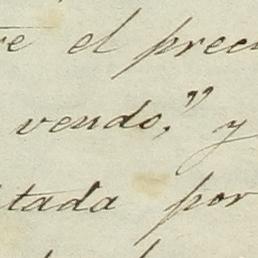 re el prec
vendo," y
tada por